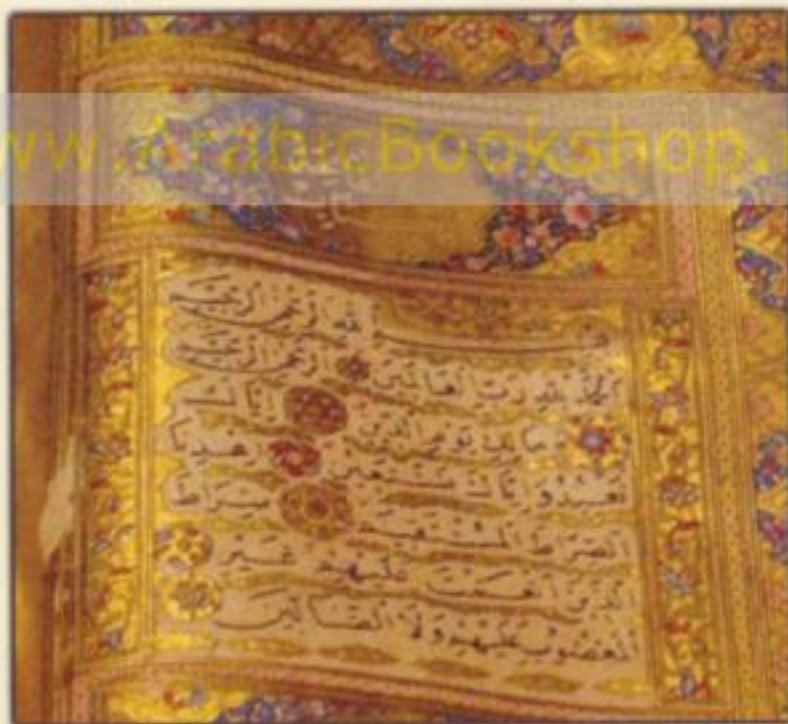 www.ArabicBookshop.
بسم الله الرحمن الرحيم
الحمد لله رب العالمين الرحمن الرحيم
مالك يوم الدين إياك
نعبد وإياك نستعين اهدنا
الصراط المستقيم صراط
الذين أنعمت عليهم غير
المغضوب عليهم ولا الضالين